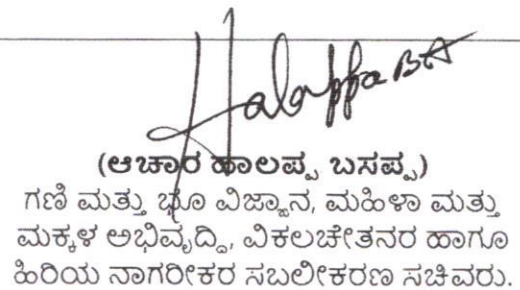 Halappa BA
(ಆಚಾರ ಹಾಲಪ್ಪ ಬಸಪ್ಪ)
ಗಣಿ ಮತ್ತು ಭೂ ವಿಜ್ಞಾನ, ಮಹಿಳಾ ಮತ್ತು
ಮಕ್ಕಳ ಅಭಿವೃದ್ದಿ, ವಿಕಲಚೇತನರ ಹಾಗೂ
ಹಿರಿಯ ನಾಗರೀಕರ ಸಬಲೀಕರಣ ಸಚಿವರು.